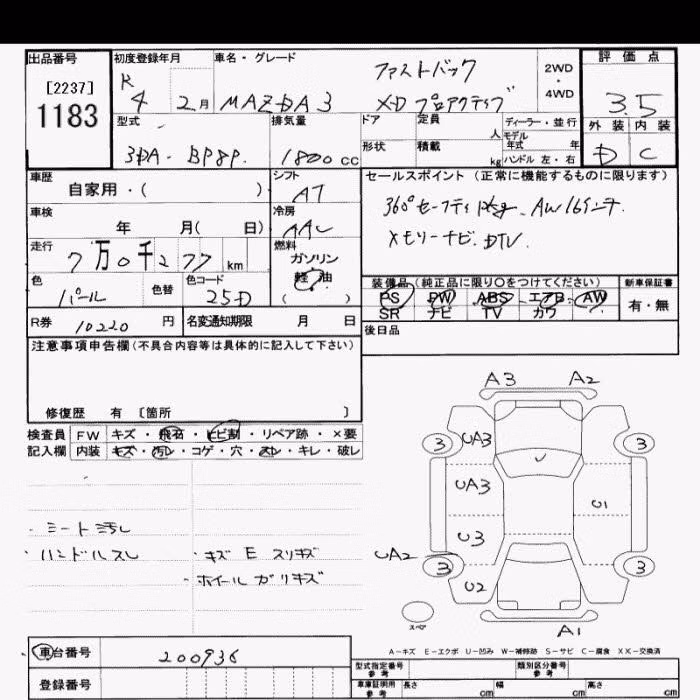 出品番号
[2237]
1183
初度登録年月
R
4 2月
車名・グレード
ファストバック
MAZDA3 XD プロアクティブ
2WD
・
4WD
評価点
3.5
外装 内装
D C
型式
3DA-BP8P
排気量
1800 cc
ドア
定員
人
形状
積載
kg
ディーラー・並行
モデル
年式 年
ハンドル 左・右
車歴
自家用・( )
シフト
AT
車検
年 月( 日)
冷房
AAC
走行
7万0千277 km
燃料
ガソリン
軽油
( )
色
パール
色替
色コード
25D
R券 10220 円
名変通知期限 月 日
セールスポイント (正常に機能するものに限ります)
360°セーフティpkg. AW16インチ.
メモリーナビ. DTV.
装備品 (純正品に限り○をつけてください)
PS PW ABS エアB AW
SR ナビ TV カワ
新車保証書
有・無
後日品
注意事項申告欄 (不具合内容等は具体的に記入して下さい)
修復歴 有 〔箇所 〕
検査員 FW キズ・飛石・ヒビ割・リペア跡・×要
記入欄 内装 キズ・汚レ・コゲ・穴・スレ・キレ・破レ
・シート汚レ
・ハンドルスレ
・キズ E スリキズ
・ホイールガリキズ
A3 A2
3 UA3 3
UA3
U1
U3
UA2
3 3
U2
スペア
A1
A-キズ E-エクボ U-凹み W-補修跡 S-サビ C-腐食 XX-交換済
車台番号 200936
登録番号
型式指定番号
参考
類別区分番号
参考
車庫証明用
参考
長さ cm 幅 cm 高さ cm